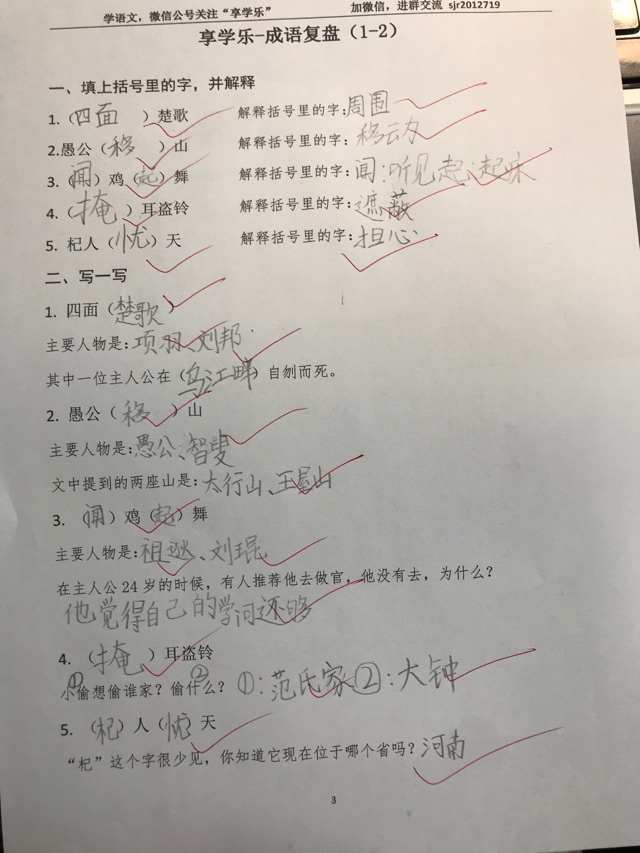 学语文，微信公号关注“享学乐” 加微信，进群交流 sjr2012719
享学乐-成语复盘（1-2）
一、填上括号里的字，并解释
1.（四面 ）楚歌 解释括号里的字:周围
2.愚公（移 ）山 解释括号里的字:移动
3.（闻）鸡（起）舞 解释括号里的字:闻:听见 起:起床
4.（掩 ）耳盗铃 解释括号里的字:遮蔽
5. 杞人（忧）天 解释括号里的字:担心
二、写一写
1. 四面（楚歌 ）
主要人物是:项羽、刘邦
其中一位主人公在（乌江畔）自刎而死。
2. 愚公（ 移 ）山
主要人物是:愚公、智叟
文中提到的两座山是:太行山、王屋山
3. （闻）鸡（起）舞
主要人物是:祖逖、刘琨
在主人公 24 岁的时候，有人推荐他去做官，他没有去，为什么？
他觉得自己的学问还够
4. （掩 ）耳盗铃
① ②
小偷想偷谁家？偷什么？ ①:范氏家②:大钟
5. （杞）人（忧）天
“杞”这个字很少见，你知道它现在位于哪个省吗？河南
3